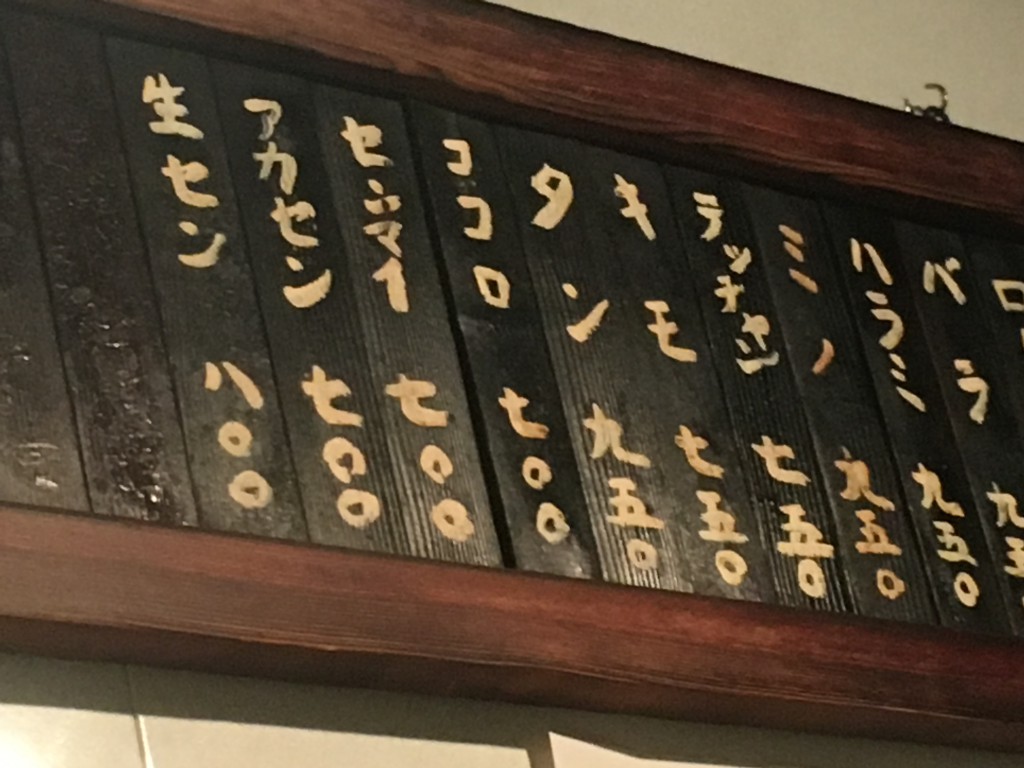 バラ 九五
ハラミ 九五〇
ミノ 九五〇
テッチャン 七五〇
キモ 七五〇
タン 九五〇
ココロ 七〇〇
センマイ 七〇〇
アカセン 七〇〇
生セン 八〇〇